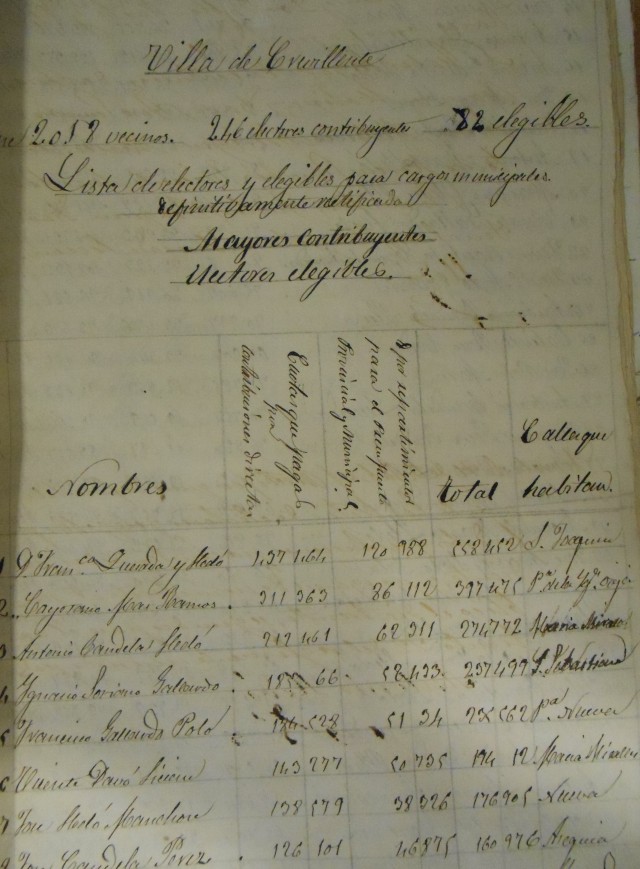 Villa de Crevillente
2.018 vecinos. 246 electores contribuyentes 82 elegibles.
Lista de electores y elegibles para cargos municipales
definitivamente rectificada
Mayores contribuyentes
Electores elegibles.
Nombres
Cuotas que pagan
por
contribuciones directas
y por repartimientos
para el Presupuesto
Provincial y Municipal.
total
Calle que
habitan.
1 D. Fran.ca Quesada y Medó 437 464 120 988 558 452 S. Joaquin
2 Cayetano Mas Ramos. 311 363 86 112 397 475
3 Antonio Candela 212 461 62 311 274 772 Maria
4 Ignacio Soriano Gallardo. 66 52 433 237 499 S. Sebastian
5 Francisco Gallardo Polo 528 51 34 562 pa. Nueva
6 Vicente Davó 143 277 50 735 194 12 Macia
7 Jose Manchon 138 579 38 326 176 905 Nueva
8 Jose Candela Perez 126 101 46875 160 976